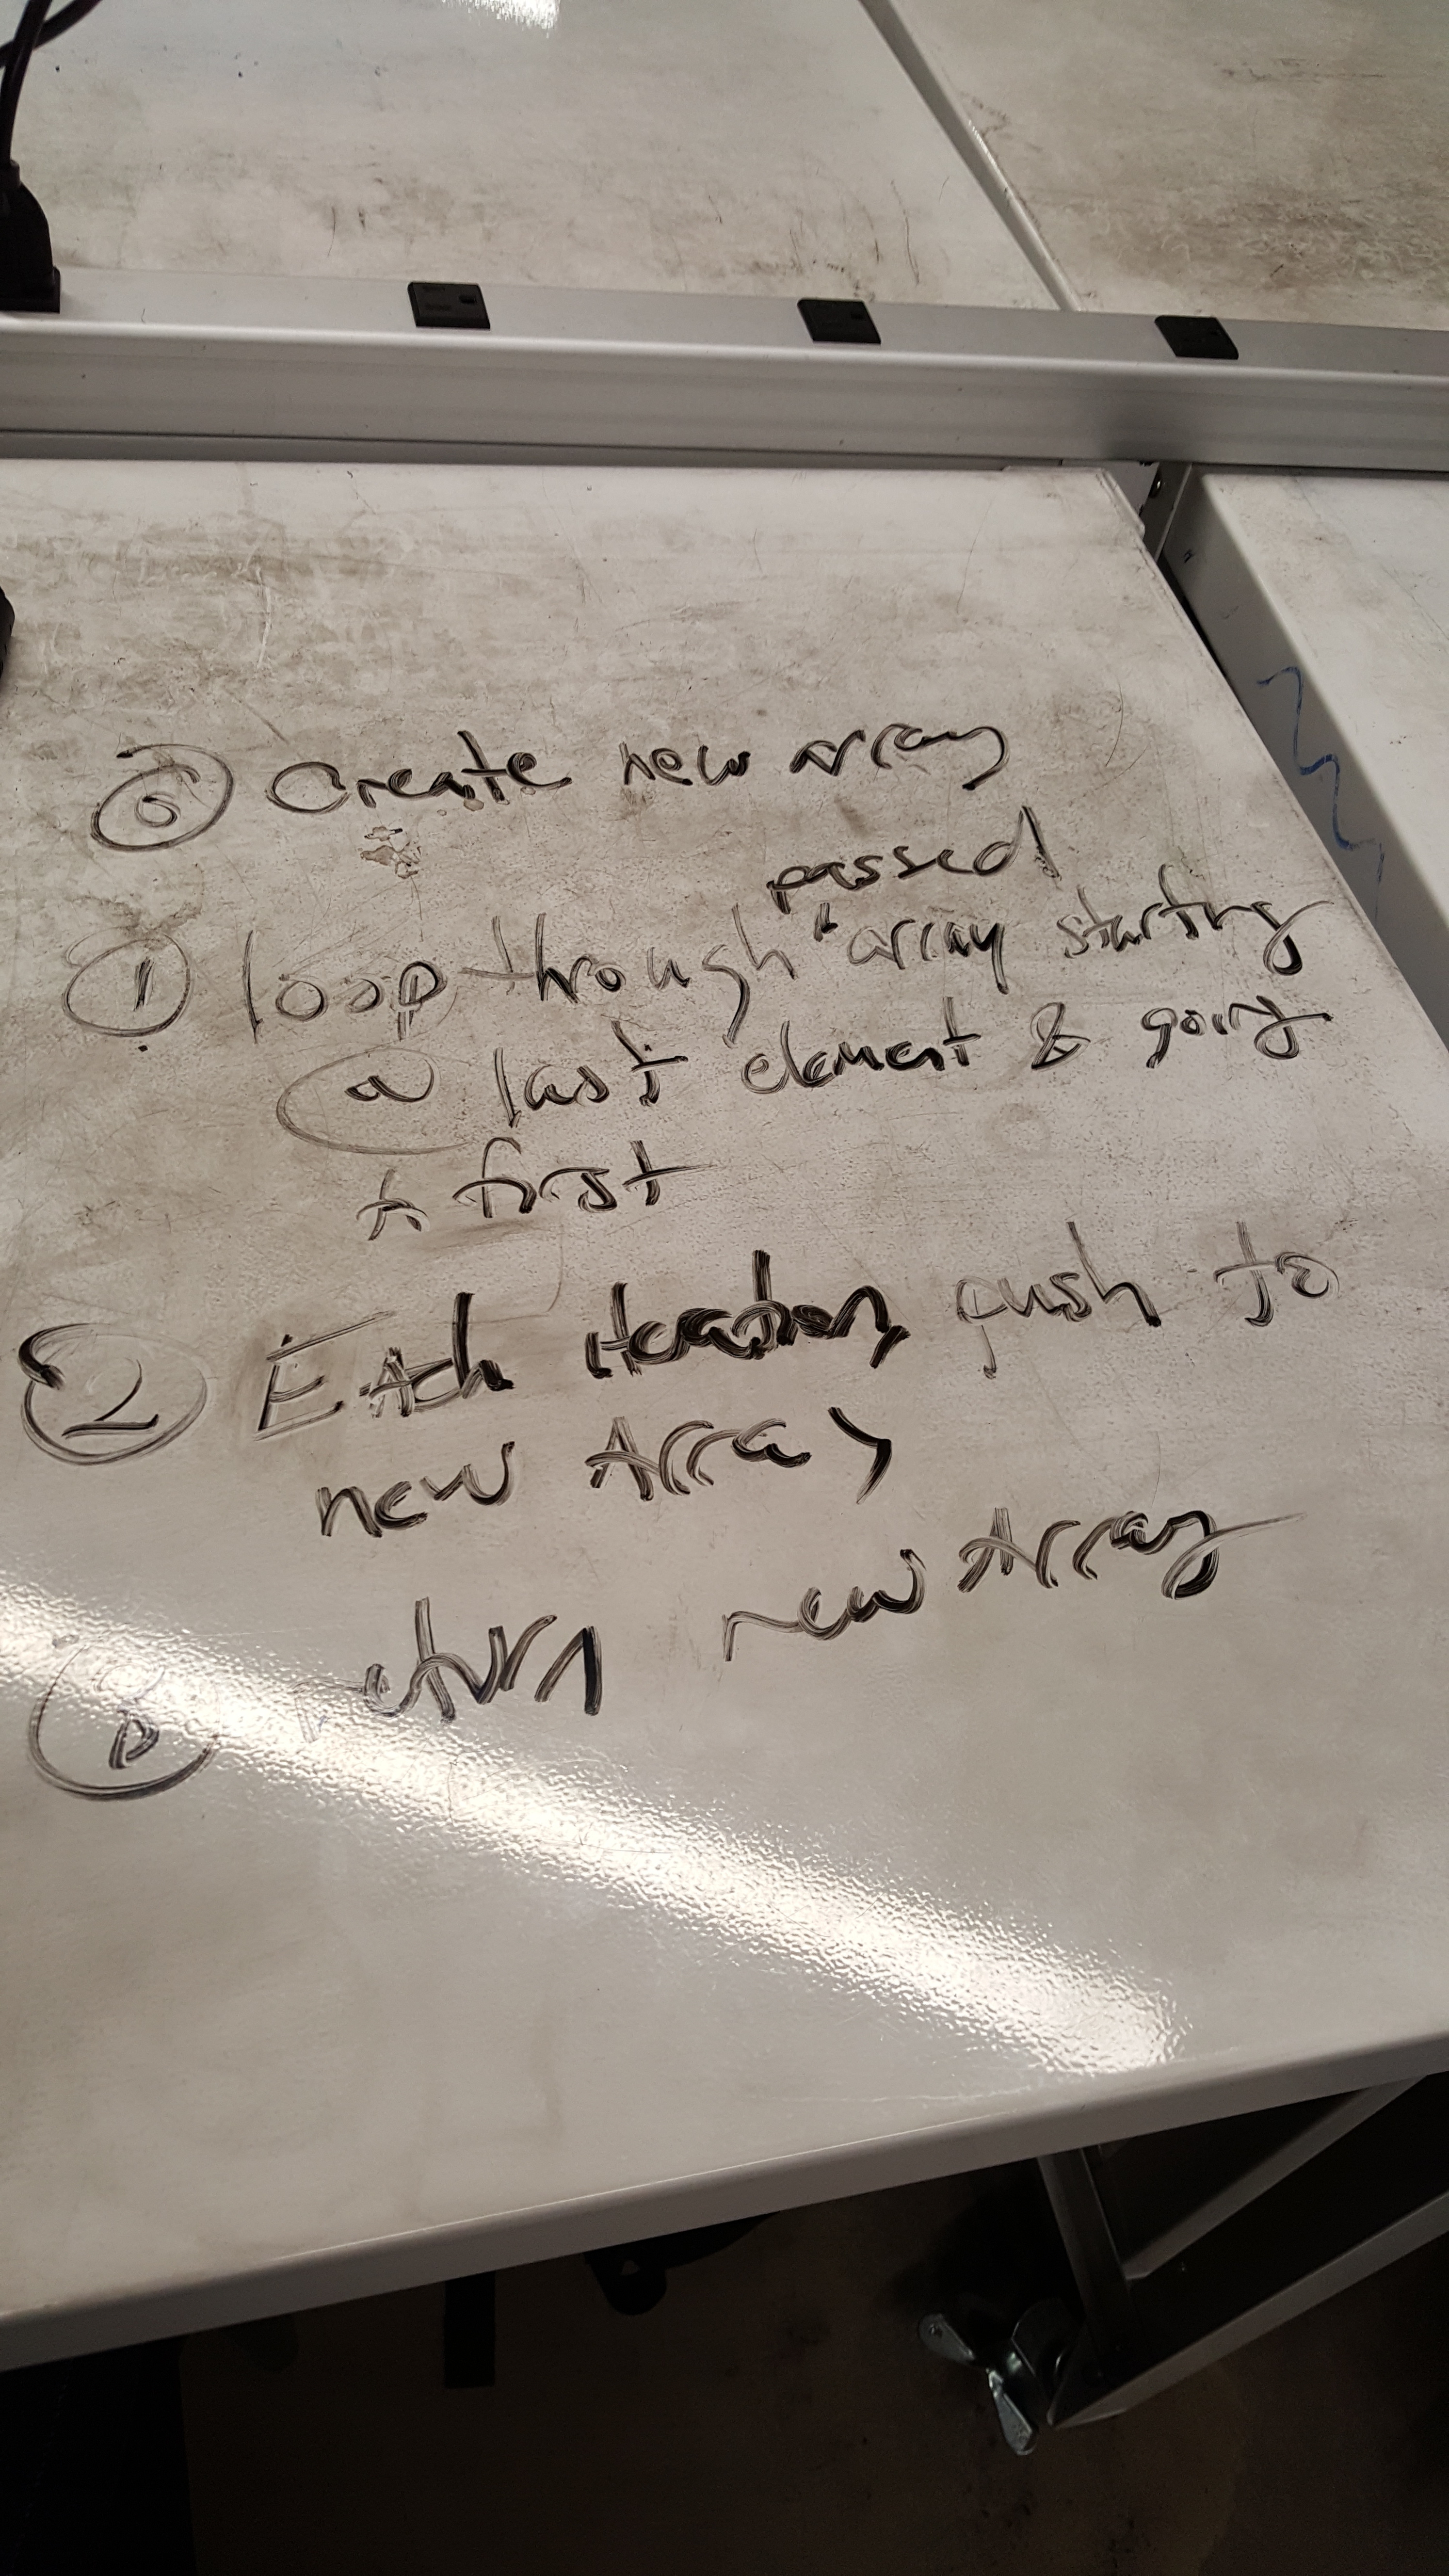 0 Create new array
passed
1 loop through ^ array starting
@ last element & going
to first
2 EAch iteration, push to
new Array
3 return new Array